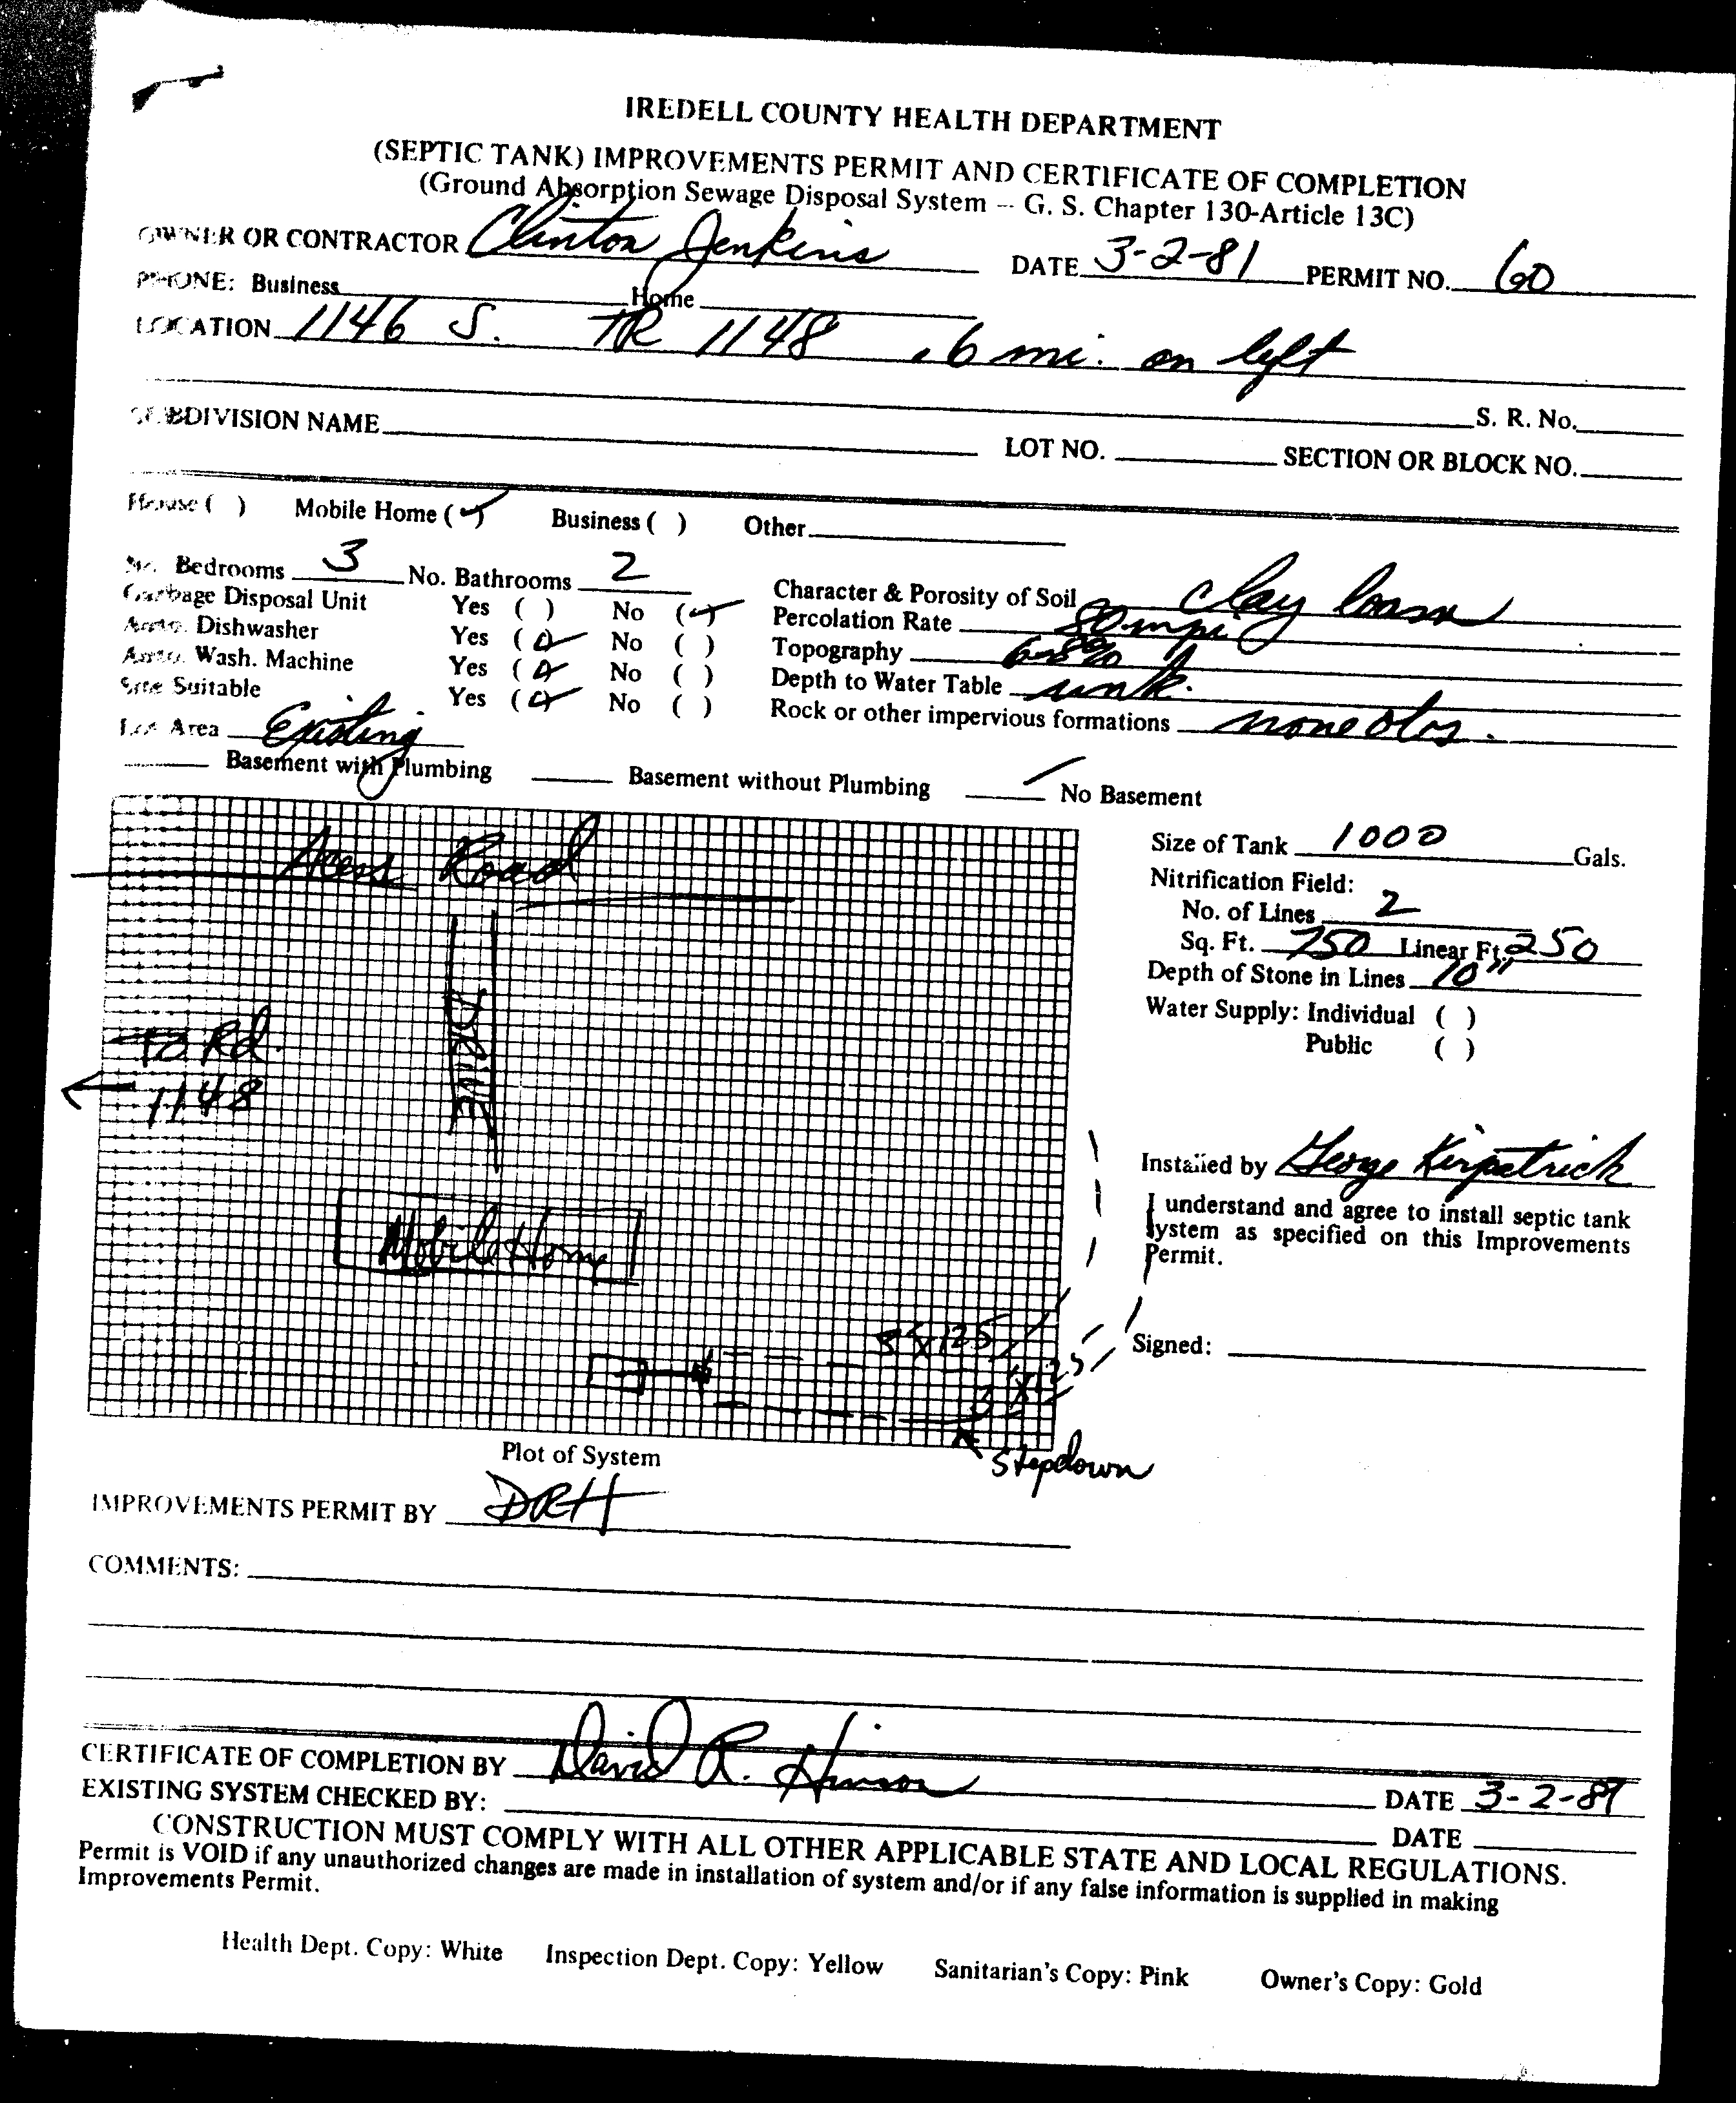 IREDELL COUNTY HEALTH DEPARTMENT
(SEPTIC TANK) IMPROVEMENTS PERMIT AND CERTIFICATE OF COMPLETION
(Ground Absorption Sewage Disposal System -- G. S. Chapter 130-Article 13C)
OWNER OR CONTRACTOR Clinton Jenkins DATE 3-2-81 PERMIT NO. 60
PHONE: Business Home
LOCATION 1146 S. TR 1148 .6 mi. on left
S. R. No.
SUBDIVISION NAME LOT NO. SECTION OR BLOCK NO.
House ( ) Mobile Home (✓) Business ( ) Other
No. Bedrooms 3 No. Bathrooms 2
Garbage Disposal Unit Yes ( ) No (✓)
Auto. Dishwasher Yes (✓) No ( )
Auto. Wash. Machine Yes (✓) No ( )
Site Suitable Yes (✓) No ( )
Lot Area Existing
Character & Porosity of Soil clay loam
Percolation Rate 80 mpi
Topography 6-8%
Depth to Water Table unk.
Rock or other impervious formations none obs.
Basement with Plumbing Basement without Plumbing ✓ No Basement
Access Road
DRIVE
To Rd.
1148
Mobile Home
3 X 125
Stepdown
Plot of System
Size of Tank 1000 Gals.
Nitrification Field:
No. of Lines 2
Sq. Ft. 750 Linear Ft. 250
Depth of Stone in Lines 10"
Water Supply: Individual ( )
Public ( )
Installed by George Kirpatrick
I understand and agree to install septic tank
system as specified on this Improvements
Permit.
Signed:
IMPROVEMENTS PERMIT BY DRH
COMMENTS:
CERTIFICATE OF COMPLETION BY David R. Hinson DATE 3-2-81
EXISTING SYSTEM CHECKED BY: DATE
CONSTRUCTION MUST COMPLY WITH ALL OTHER APPLICABLE STATE AND LOCAL REGULATIONS.
Permit is VOID if any unauthorized changes are made in installation of system and/or if any false information is supplied in making
Improvements Permit.
Health Dept. Copy: White Inspection Dept. Copy: Yellow Sanitarian's Copy: Pink Owner's Copy: Gold